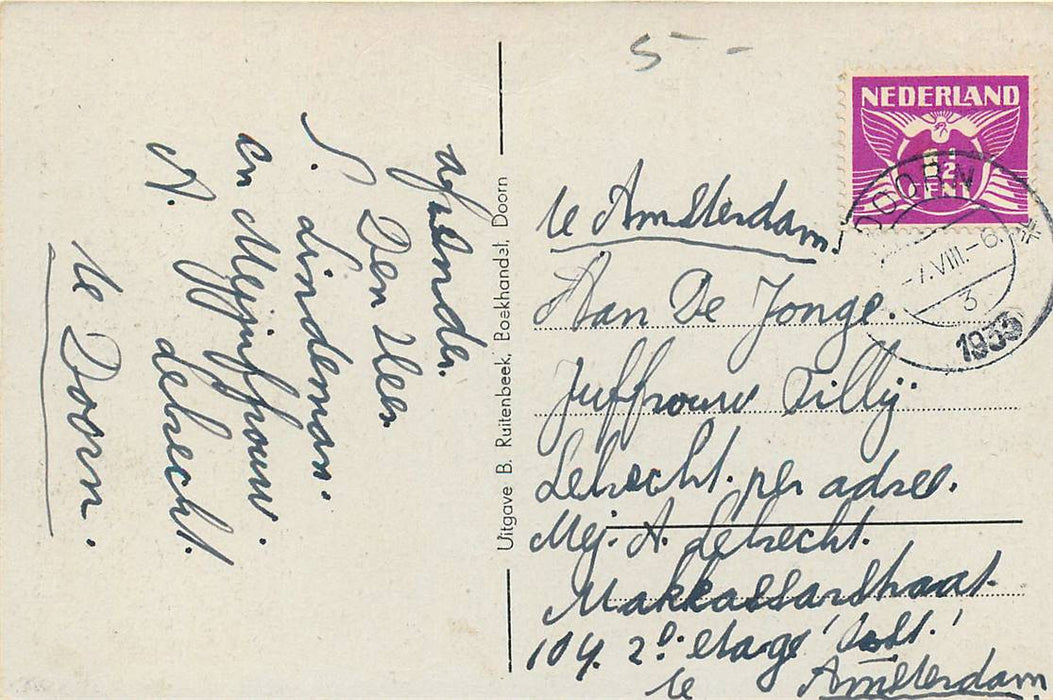 5 - -
NEDERLAND
1½
CENT
DOORN
-7.VIII.-6.
3
1935
te Amsterdam.
Aan De Jonge.
Juffrouw Tillÿ
Lebrecht. per adres.
Mej. A. Lebrecht.
Makkassarstraat.
104. 2e. etage
te Amsterdam
Uitgave B. Ruitenbeek, Boekhandel, Doorn
afzender.
Den Heer
J. Lindeman.
en Mejuffrouw.
A. Lebrecht.
te Doorn.